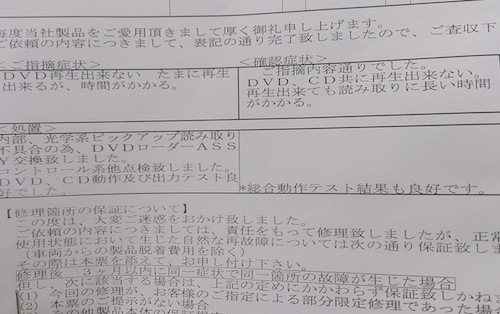 毎度当社製品をご愛用頂きまして厚く御礼申し上げます。
ご依頼の内容につきまして、表記の通り完了致しましたので、ご査収下
<ご指摘症状>
DVD再生出来ない たまに再生
出来るが、時間がかかる。
<確認症状>
ご指摘内容通りでした。
DVD、CD共に再生出来ない。
再生出来ても読み取りに長い時間
がかかる。
<処置>
内部、光学系ピックアップ読み取り
不具合の為、DVDローダーASS
Y交換致しました。
コントロール系他点検致しました。
DVD、CD動作及び出力テスト良
好でした。
*総合動作テスト結果も良好です。
【修理箇所の保証について】
この度は、大変ご迷惑をおかけ致しました。
ご依頼の内容につきましては、責任をもって修理致しましたが、正常
使用状態において生じた自然な再故障については次の通り保証致しま
(車両からの製品脱着費用を除く)
その際は本票を添えて、お申し付け下さい。
修理後 3ヶ月以内に同一症状で同一箇所の故障が生じた場合
但し、次に該当する場合は、上記の定めにかかわらず保証致しかねま
(1) 今回の修理が、お客様のご指定による部分限定修理であった場
(2) 本票のご提示がない場合